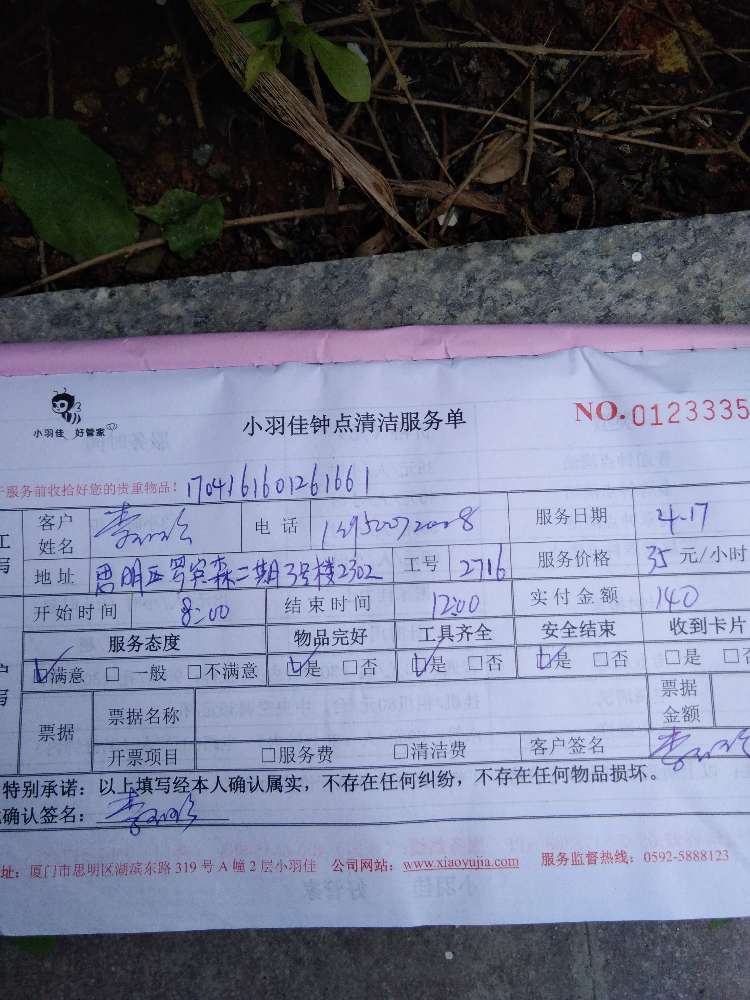 小羽佳 好管家
小羽佳钟点清洁服务单
NO.0123335
服务前收拾好您的贵重物品! 1704161601261661
客户姓名 电话 服务日期 4.17
地址 思明区 二期3号楼2302 工号 2716 服务价格 35 元/小时
开始时间 8:00 结束时间 12:00 实付金额 140
服务态度 物品完好 工具齐全 安全结束 收到卡片
☑满意 □一般 □不满意 ☑是 □否 ☑是 □否 ☑是 □否 □是 □否
票据 票据名称 票据金额
开票项目 □服务费 □清洁费 客户签名
特别承诺：以上填写经本人确认属实，不存在任何纠纷，不存在任何物品损坏。
确认签名：
址：厦门市思明区湖滨东路 319 号 A 幢 2 层小羽佳 公司网站：www.xiaoyujia.com 服务监督热线：0592-5888123